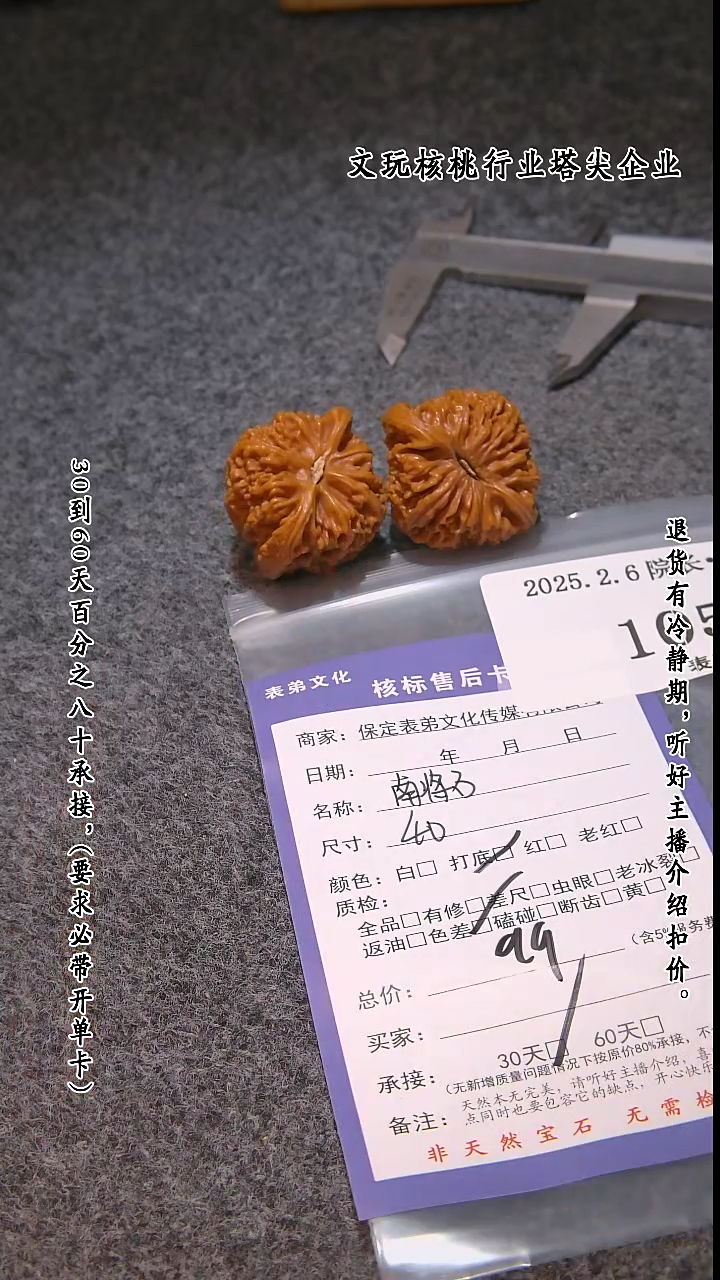 文玩核桃行业塔尖企业
30到60天百分之八十承接，（要求必带开单卡）
退货有冷静期，听好主播介绍扣价。
2025.2.6 院长
表弟文化 核标售后卡
商家：保定表弟文化传媒
日期： 年 月 日
名称：南将石
尺寸：40
颜色：白□ 打底□ 红□ 老红□
质检：
全品□有修□差尺□虫眼□老冰裂□
返油□色差□磕碰□断齿□黄□
总价： 99 （含5%服务费
买家：
承接： 30天□ 60天□
（无新增质量问题情况下按原价80%承接，不
备注：天然本无完美，请听好主播介绍，喜
点同时也要包容它的缺点，开心快乐
非天然宝石 无需检